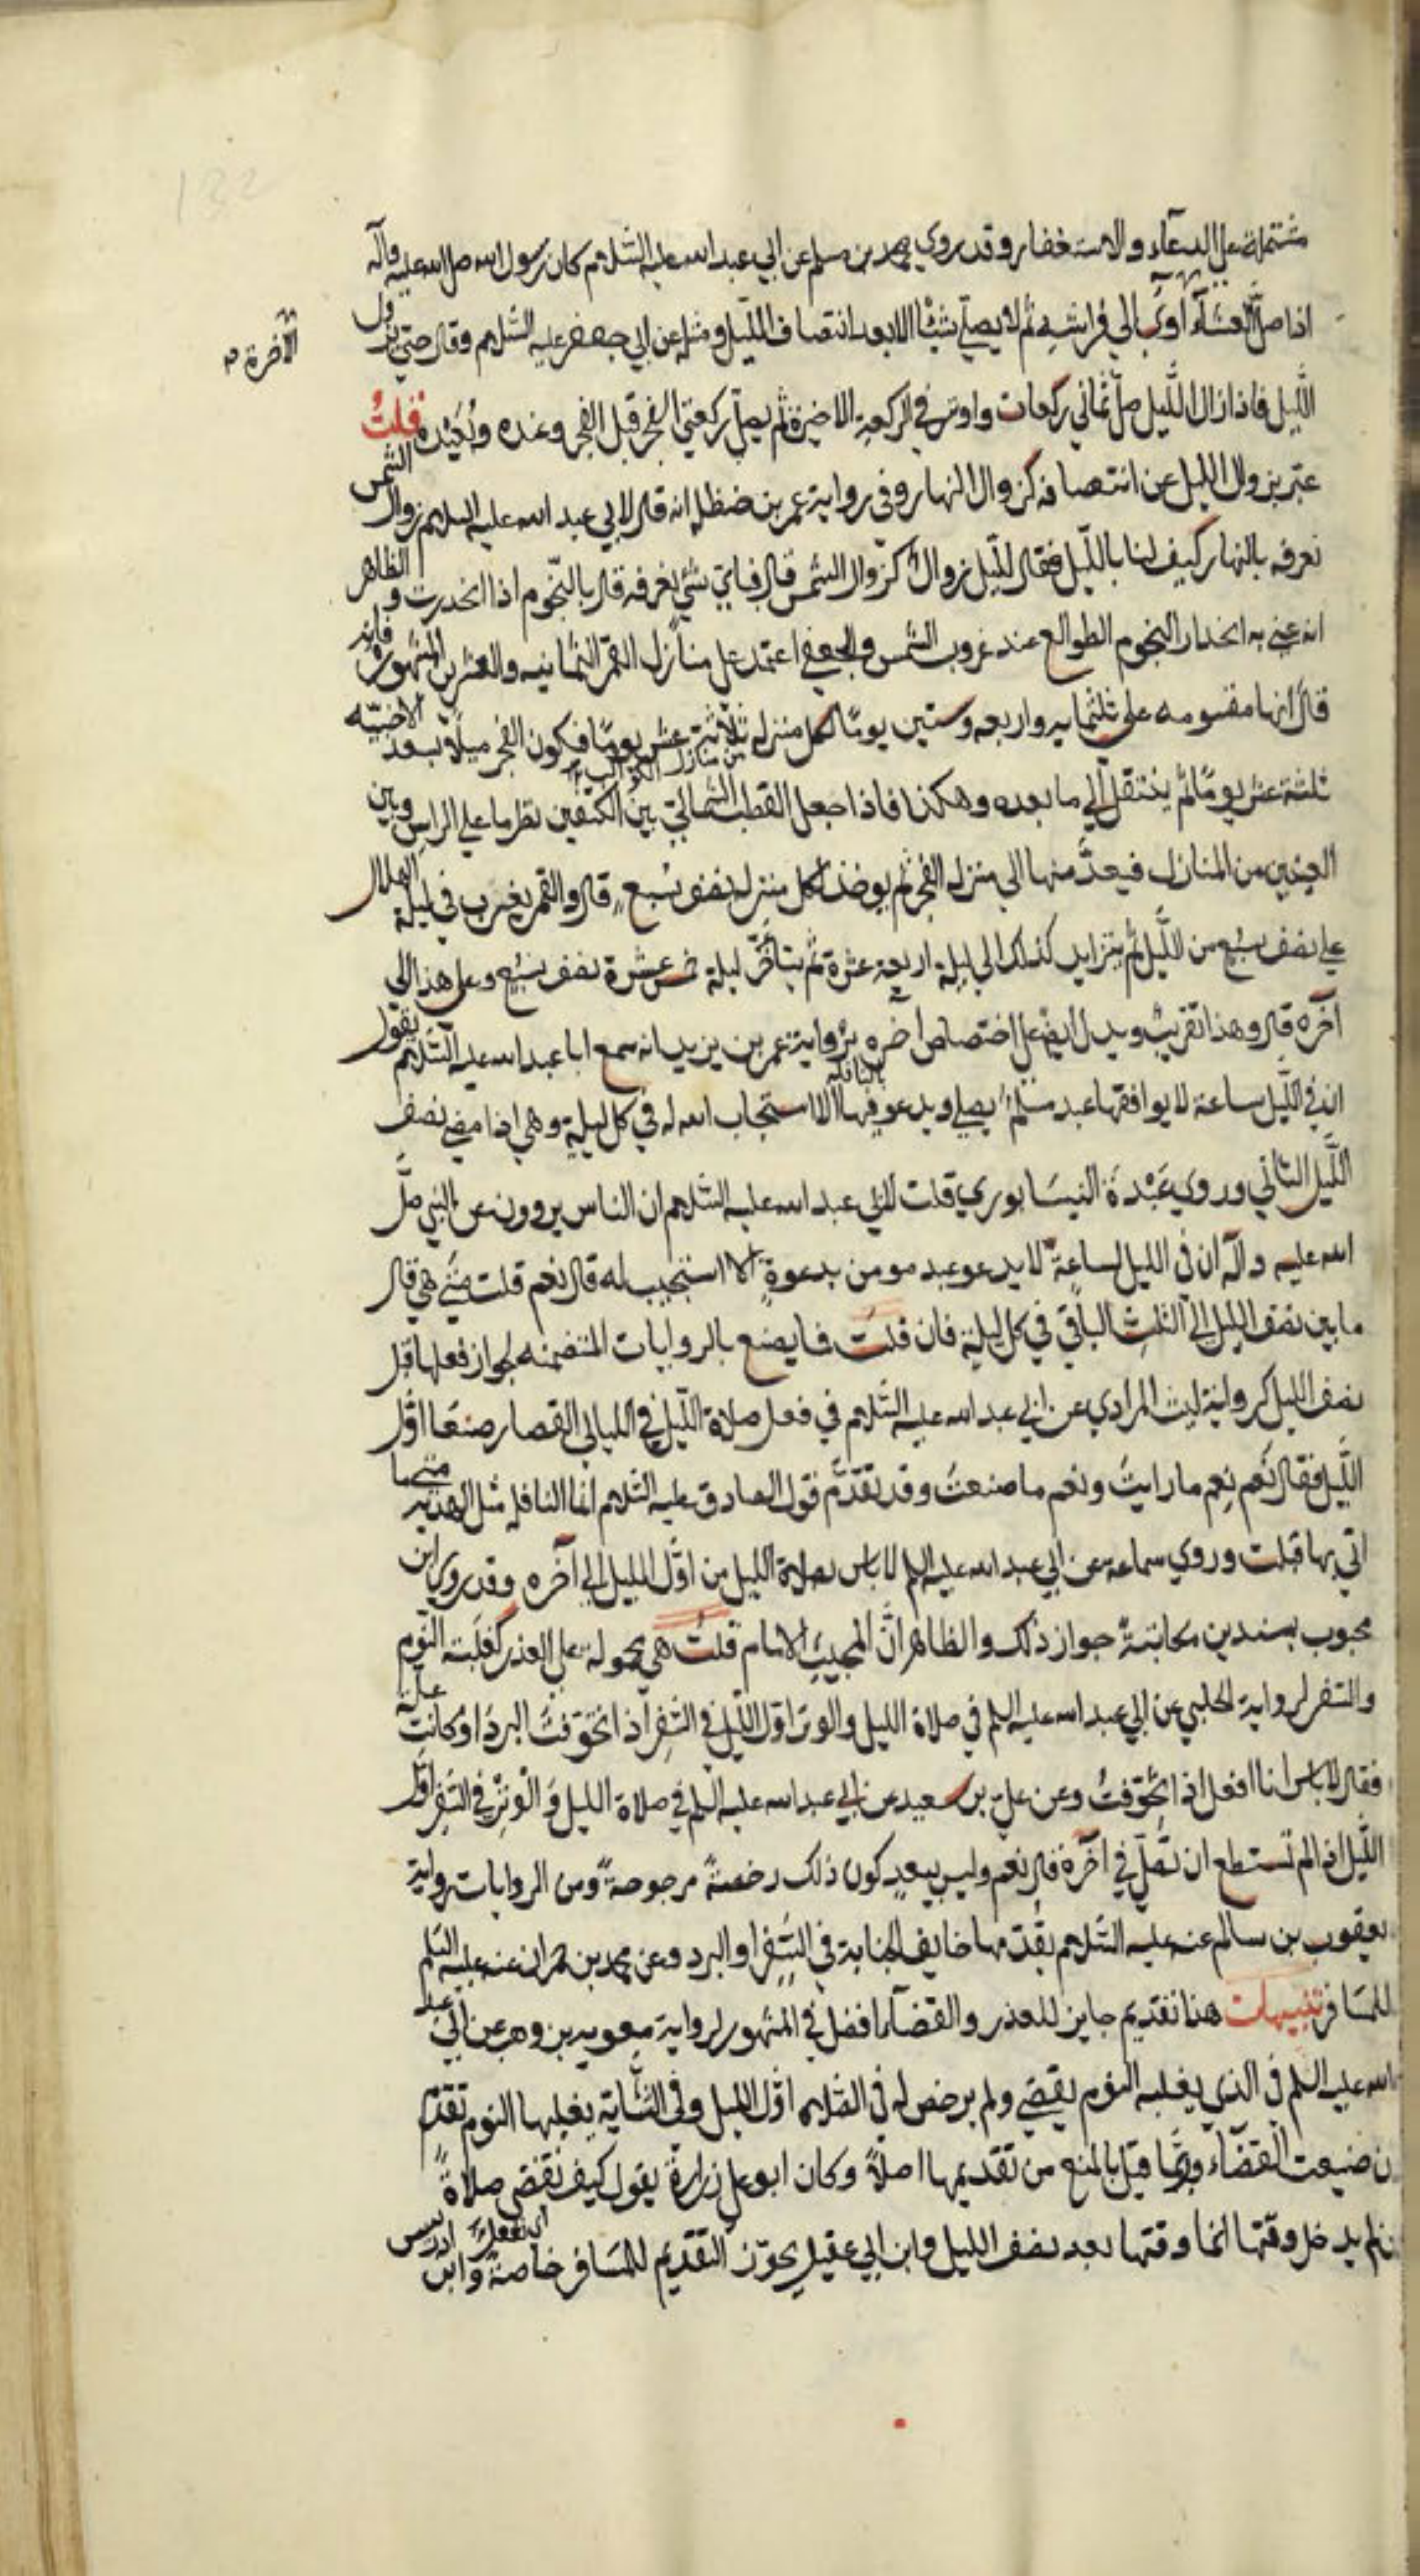 مشتملة على الدعاء والاستغفار وقد روي محمد بن مسلم عن ابي عبد الله عليه السلام كان رسول الله صلى الله عليه وآله
اذا صلى العشاء آوى الى فراشه ثم لا يصلي شيئا الا بعد انتصاف الليل ومثله عن ابي جعفر عليه السلام وقال حتى يزول
الآخرة
الليل فاذا زال الليل صلى ثماني ركعات واوتر في الركعة الاخيرة ثم يصلي ركعتي الفجر قبل الفجر وعنده وبعيده قلت
عبر بزوال الليل عن انتصافه كزوال النهار وفي رواية عمر بن حنظلة انه قال لابي عبد الله عليه السلام زوال الشمس
نعرفه بالنهار كيف لنا بالليل فقال لليل زوال كزوال الشمس قال فباي شيء نعرفه قال بالنجوم اذا انحدرت والظاهر
انه عنى به انحدار النجوم الطوالع عند غروب الشمس والجعفي اعتمد على منازل القمر الثمانية والعشرين المشهورة فانه
قال انها مقسومة على ثلثمايه واربعه وستين يوما لكل منزلة ثلاثة عشر يوما فيكون الفجر مثلا بسعد الاخبيه
ثلثة عشر يوما ثم ينتقل الى ما بعده وهكذا فاذا جعل القطب الشمالي بين الكتفين نظر ما على الراس وبين
من منازل
العينين من المنازل فيعد منها الى منزلة الفجر ثم يوخذ لكل منزلة نصف سبع قال والقمر يغرب في ليلة الهلال
على نصف سبع من الليل ثم يتزايد كذلك الى ليلة اربعة عشرة ثم يتأخر ليلة خمس عشرة نصف سبع وعلى هذا الى
آخره قال وهذا تقريب ويدل ايضا على اختصاص آخره برواية عمر بن يزيد انه سمع ابا عبد الله عليه السلام يقول
ان في الليل ساعة لا يوافقها عبد مسلم يصلي ويدعو فيها الا استجاب الله له في كل ليلة وهي اذا مضى نصف
بالنافلة
الليل الثاني وروي عبدة النيسابوري قلت لابي عبد الله عليه السلام ان الناس يروون عن النبي صلى
الله عليه وآله ان في الليل لساعة لا يدعو عبد مومن بدعوة الا استجيب له قال نعم قلت متى هي قال
ما بين نصف الليل الى الثلث الباقي في كل ليلة فان قلت فما يصنع بالروايات المتضمنه لجواز فعلها قبل
نصف الليل كرواية ليث المرادي عن ابي عبد الله عليه السلام في فعل صلاة الليل في الليالي القصار صيفا اول
الليل فقال نعم نعم ما رايت ونعم ما صنعت وقد تقدم قول الصادق عليه السلام انما النافلة مثل الهدية متى ما
اتي بها قبلت وروي سماعة عن ابي عبد الله عليه السلم لا باس بصلاة الليل من اول الليل الى آخره وقد روى ابن
محبوب بسندين مكاتبة جواز ذلك والظاهر ان المجيب الامام قلت هي محمولة على العذر كغلبة النوم
والسفر لرواية الحلبي عن ابي عبد الله عليه السلم في صلاة الليل والوتر اول الليل في السفر اذا تخوفت البرد او كانت علة
فقال لا باس انا افعل اذا تخوفت وعن علي بن سعيد عن ابي عبد الله عليه السلم في صلاة الليل والوتر في السفر اول
الليل اذا لم تستطع ان تصلي في آخره قال نعم وليس ببعيد كون ذلك رخصة مرجوحة ومن الروايات رواية
يعقوب بن سالم عنه عليه السلام يقدمها خايف الجنابة في السفر او البرد وعن محمد بن حمران عنه عليه السلم
للمسافر تنبيهات هنا تقديم جايز للعذر والقضاء افضل في المشهور لرواية معويه بن وهب عن ابي عبد
الله عليه السلم في الذي يغلبه النوم يقضي ولم يرخص له في الصلاة اول الليل وفي الشابة يغلبها النوم تقدم
ن ضيعت القضاء وربما قيل بالمنع من تقديمها اصلا وكان ابو علي زرارة يقول كيف تقضى صلاة
لم يدخل وقتها انما وقتها بعد نصف الليل وابن ابي عقيل يجوز التقديم للمسافر خاصة وابن ادريس
اي تفعل